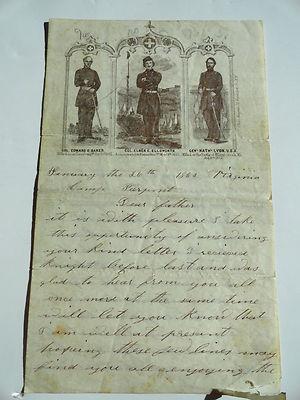 COL. EDWARD D. BAKER.
COL. ELMER E. ELLSWORTH
GEN. NATH'L LYON, U.S.A.
January the 26th 1862 Virginia
Camp Pierpont
Dear father
it is with pleasure I take
this oppertunity of answering
your kind letter I received
knight before last and was
glad to hear from you all
once more at the same time
will let you know that
I am well at present
hopeing these few lines may
find you all enjoying the